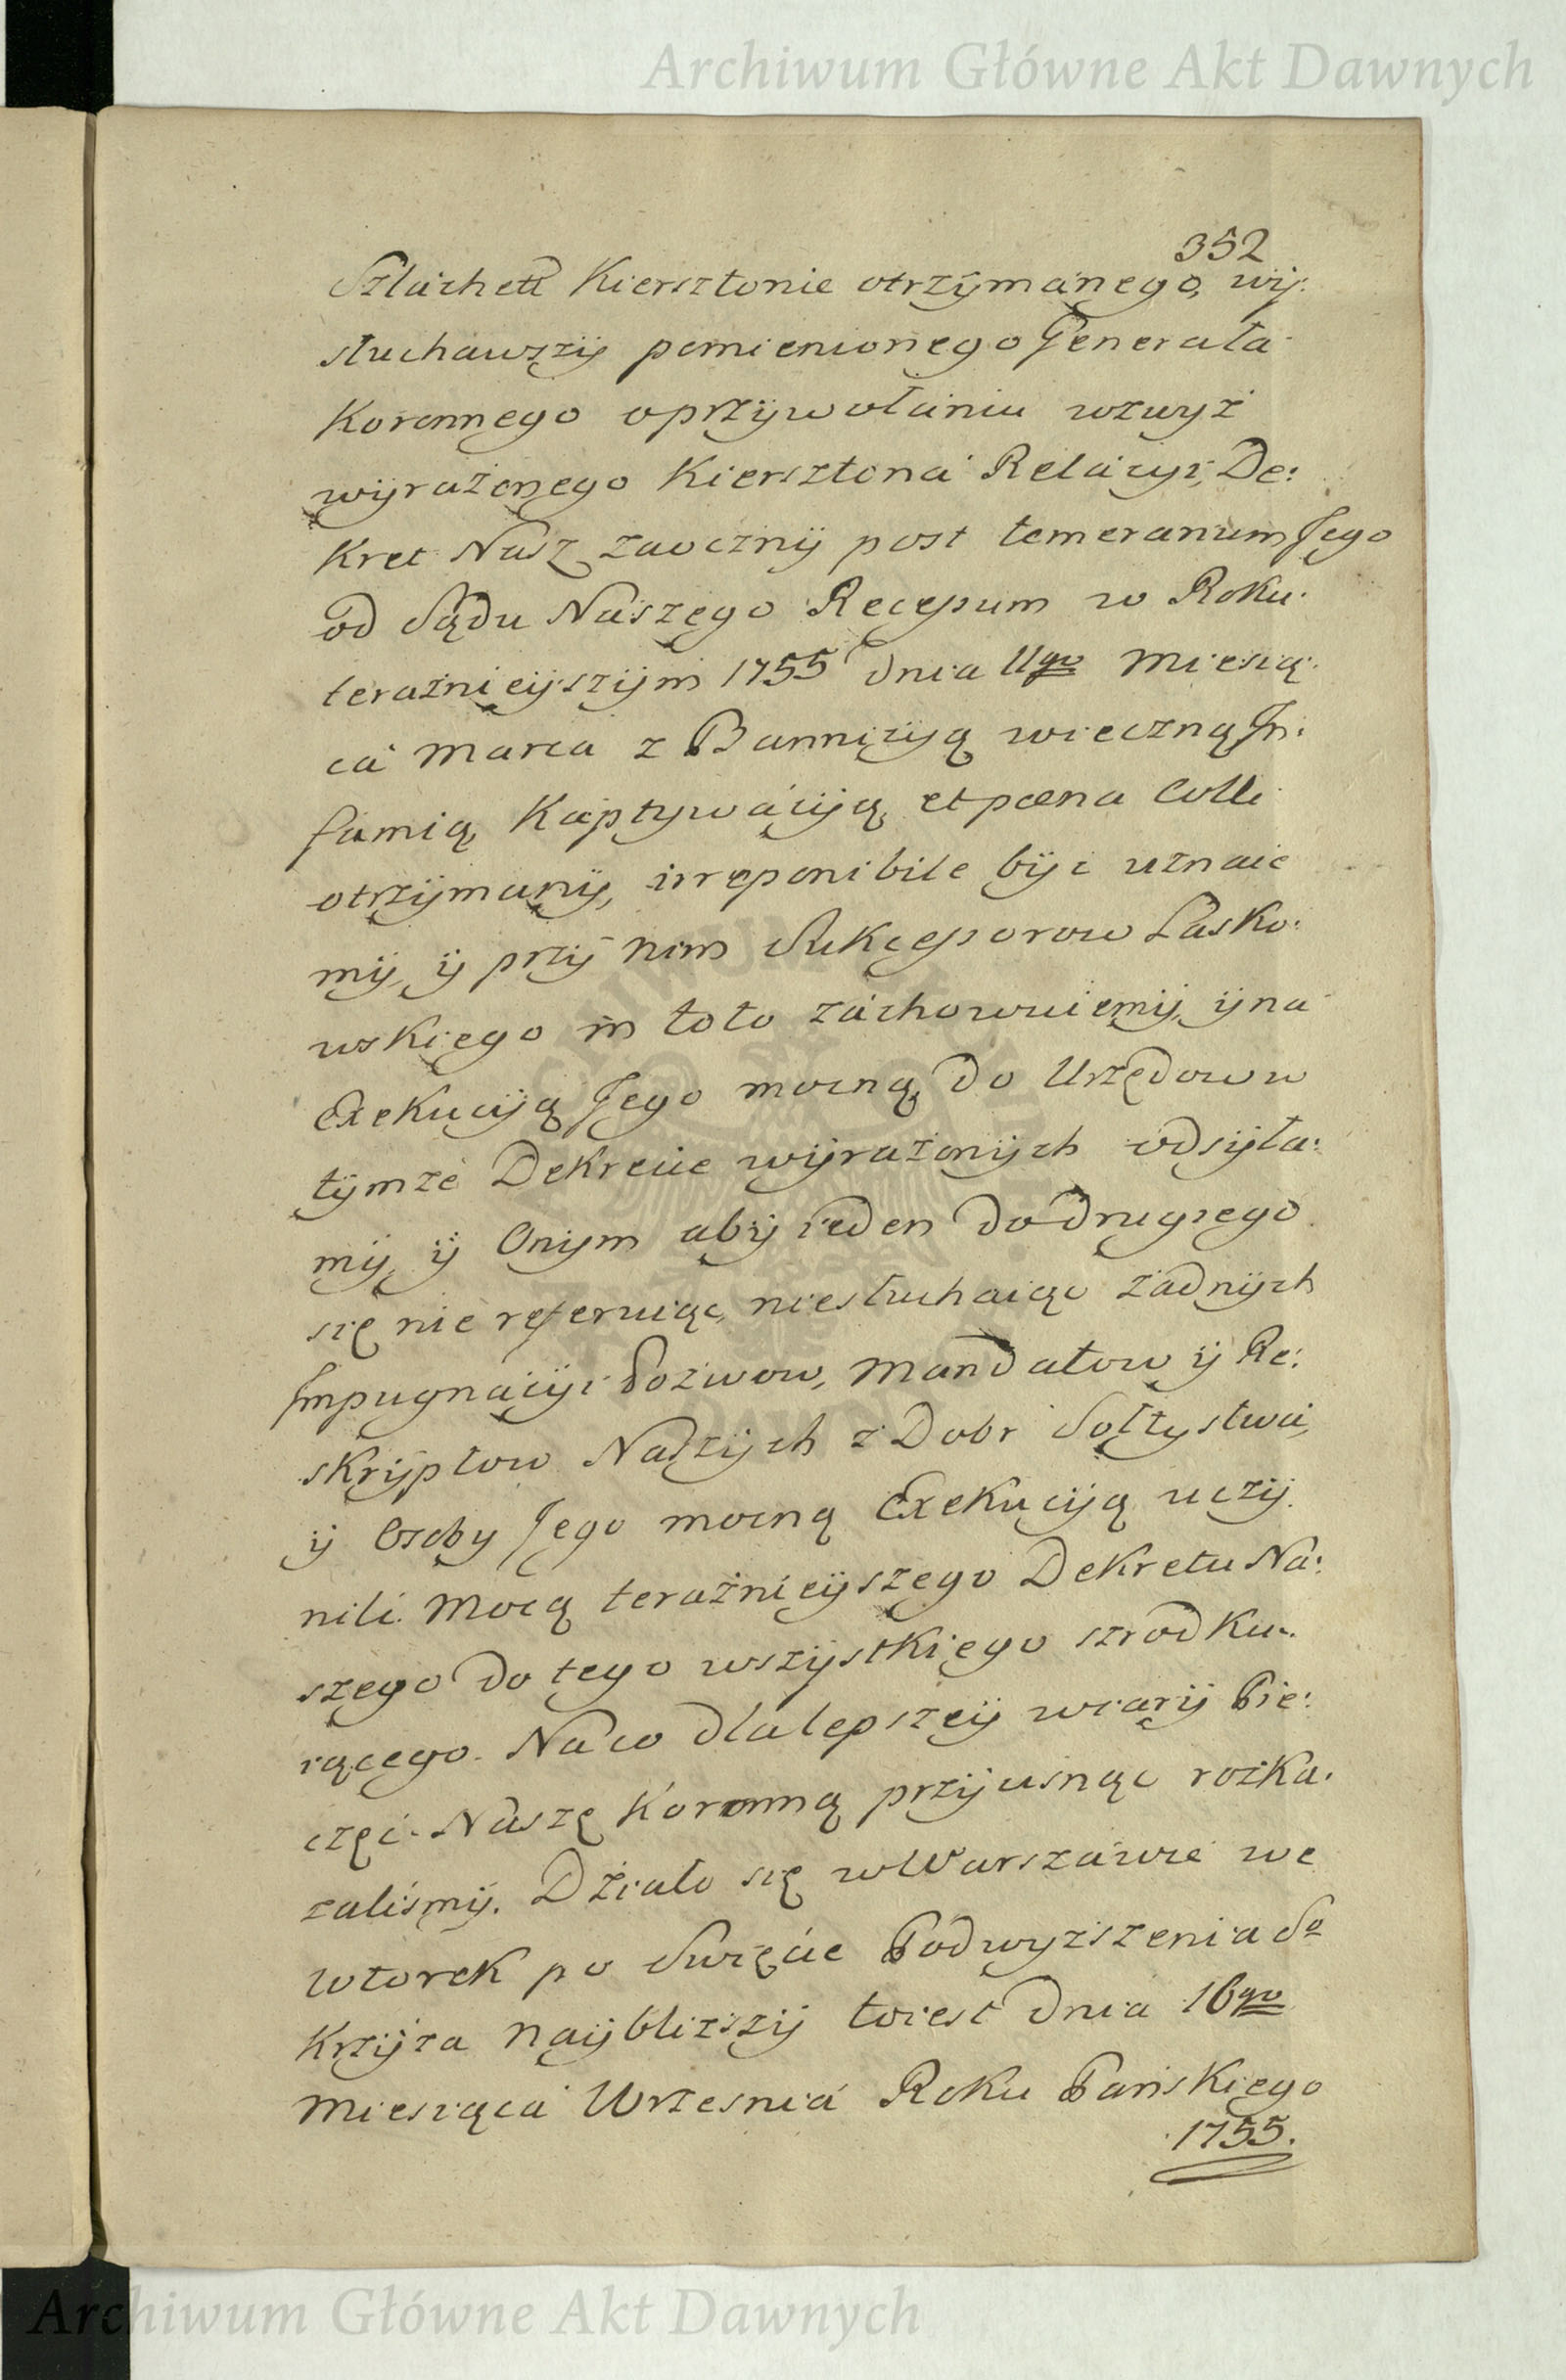 Archiwum Główne Akt Dawnych
352
Szlachett Kiersztonie otrzÿmanego, wÿ:
słuchawszÿ pomienionego Generała
Koronnego o przÿwołaniu wzwyż
wÿrażonego Kiersztona Relacyi, De:
kret Nasz zaocznÿ post temerarium Jego
od Sądu Naszego Recessum w Roku
teraźnieÿszÿm 1755 dnia 11go Miesią:
ca Marca z Bannizyą wieczną In:
famią, Kaptywácÿą, et pœna Colli
otrzÿmanÿ, irreponibile bÿi uznaie
mÿ, ÿ przÿ nim Sukcessorow Lasko:
wskiego in toto zachowuiemÿ, ÿ na
Exekucÿą Jego mocną, do Urzędow w
tÿmże Dekrecie wÿrażonÿch odsÿła:
mÿ, ÿ Onÿm abÿ ieden do drugiego
się nie referuiąc, niesłuchaiąc żadnÿch
Impugnacÿi Pozwow, Mandatow ÿ Re:
skrÿptow Naszÿch z Dobr Sołtystwa,
ÿ Osoby Jego mocną Exekucÿą uczÿ
nili. Mocą teraźnieÿszego Dekretu Na:
szego do tego wszÿstkiego szrodku:
iącego. Na co dla lepszeÿ wiarÿ Pie:
częć Naszę Koronną przÿcisnąc rozka:
zalismÿ. Działo się w Warszawie we
Wtorek po Swięcie Podwyższenia So
Krzÿża naÿbliższÿ to iest dnia 16go
Miesiąca Wrzesnia Roku Pańskiego
1755.
Archiwum Główne Akt Dawnych